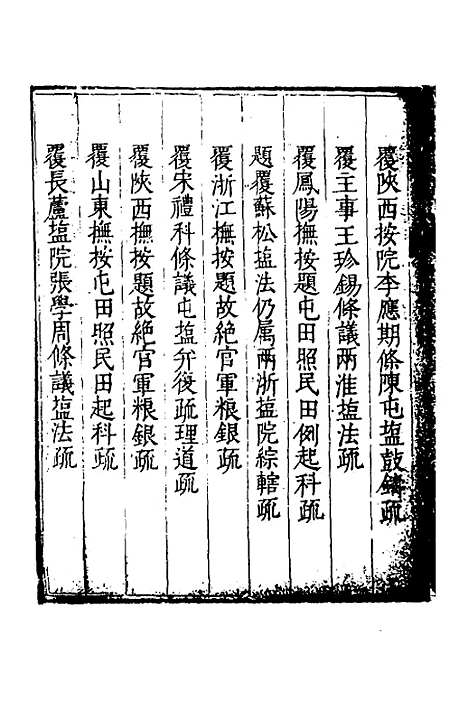 覆陝西按院李應期條陳屯塩鼓鑄疏
覆主事王珍錫條議兩淮塩法疏
覆鳳陽撫按題屯田照民田例起科疏
題覆蘇松塩法仍属兩浙塩院綜轄疏
覆浙江撫按題故絶官軍粮銀疏
覆宋禮科條議屯塩弁後疏理道疏
覆陜西撫按題故絶官軍粮銀疏
覆山東撫按屯田照民田起科疏
覆長蘆塩院張學周條議塩法疏